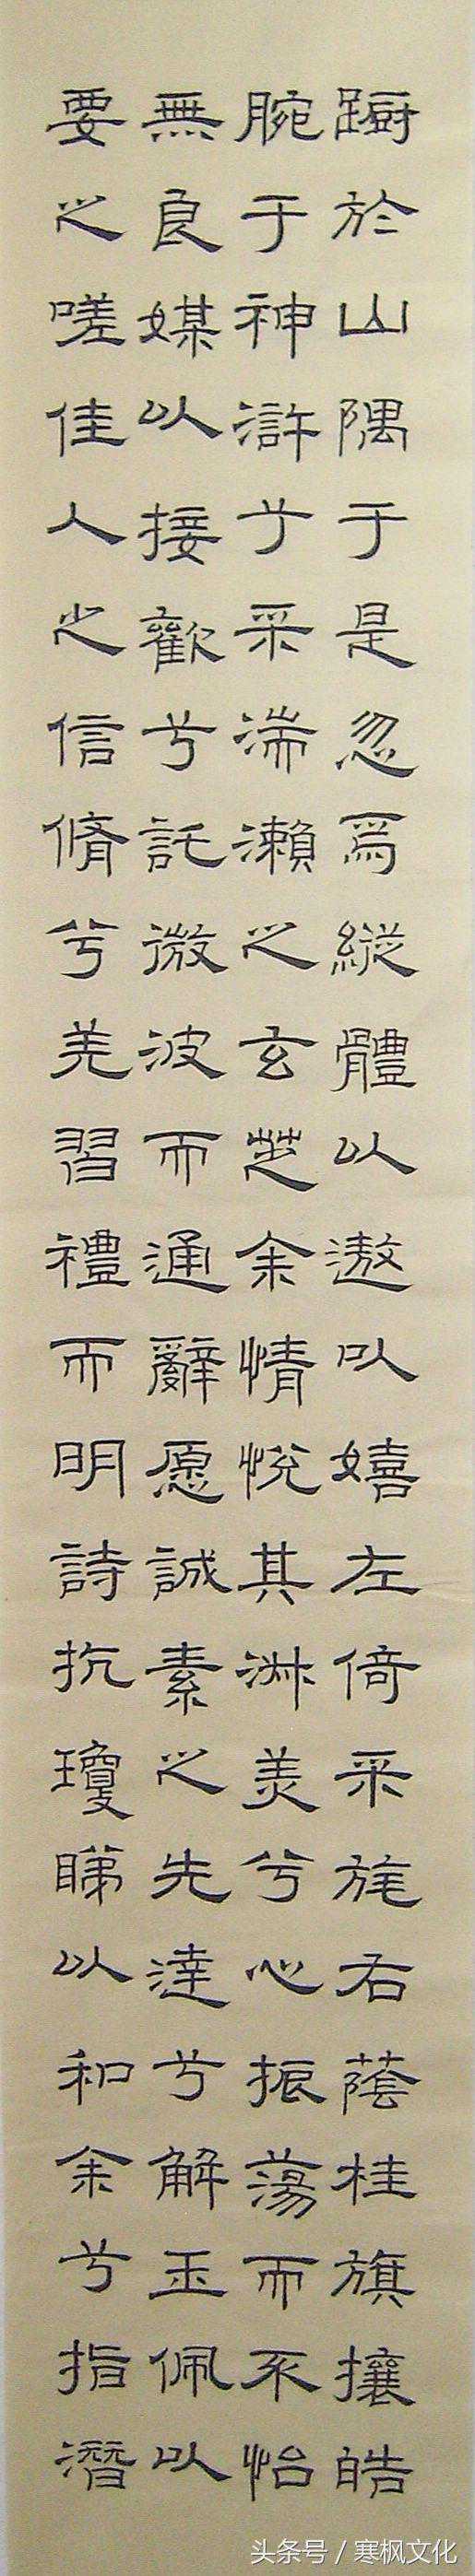 蹰於山隅于是忽焉縱體以遨以嬉左倚采旄右蔭桂旗攘皓
腕于神滸兮采湍瀨之玄芝余情悅其淑美兮心振蕩而不怡
無良媒以接歡兮託微波而通辭愿誠素之先達兮解玉佩以
要之嗟佳人之信脩兮羌習禮而明詩抗瓊珶以和余兮指潛
头条号 / 寒枫文化